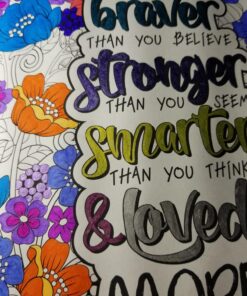 braver
THAN YOU BELIEVE
stronger
THAN YOU SEEM
smarter
THAN YOU THINK
& loved
MORE